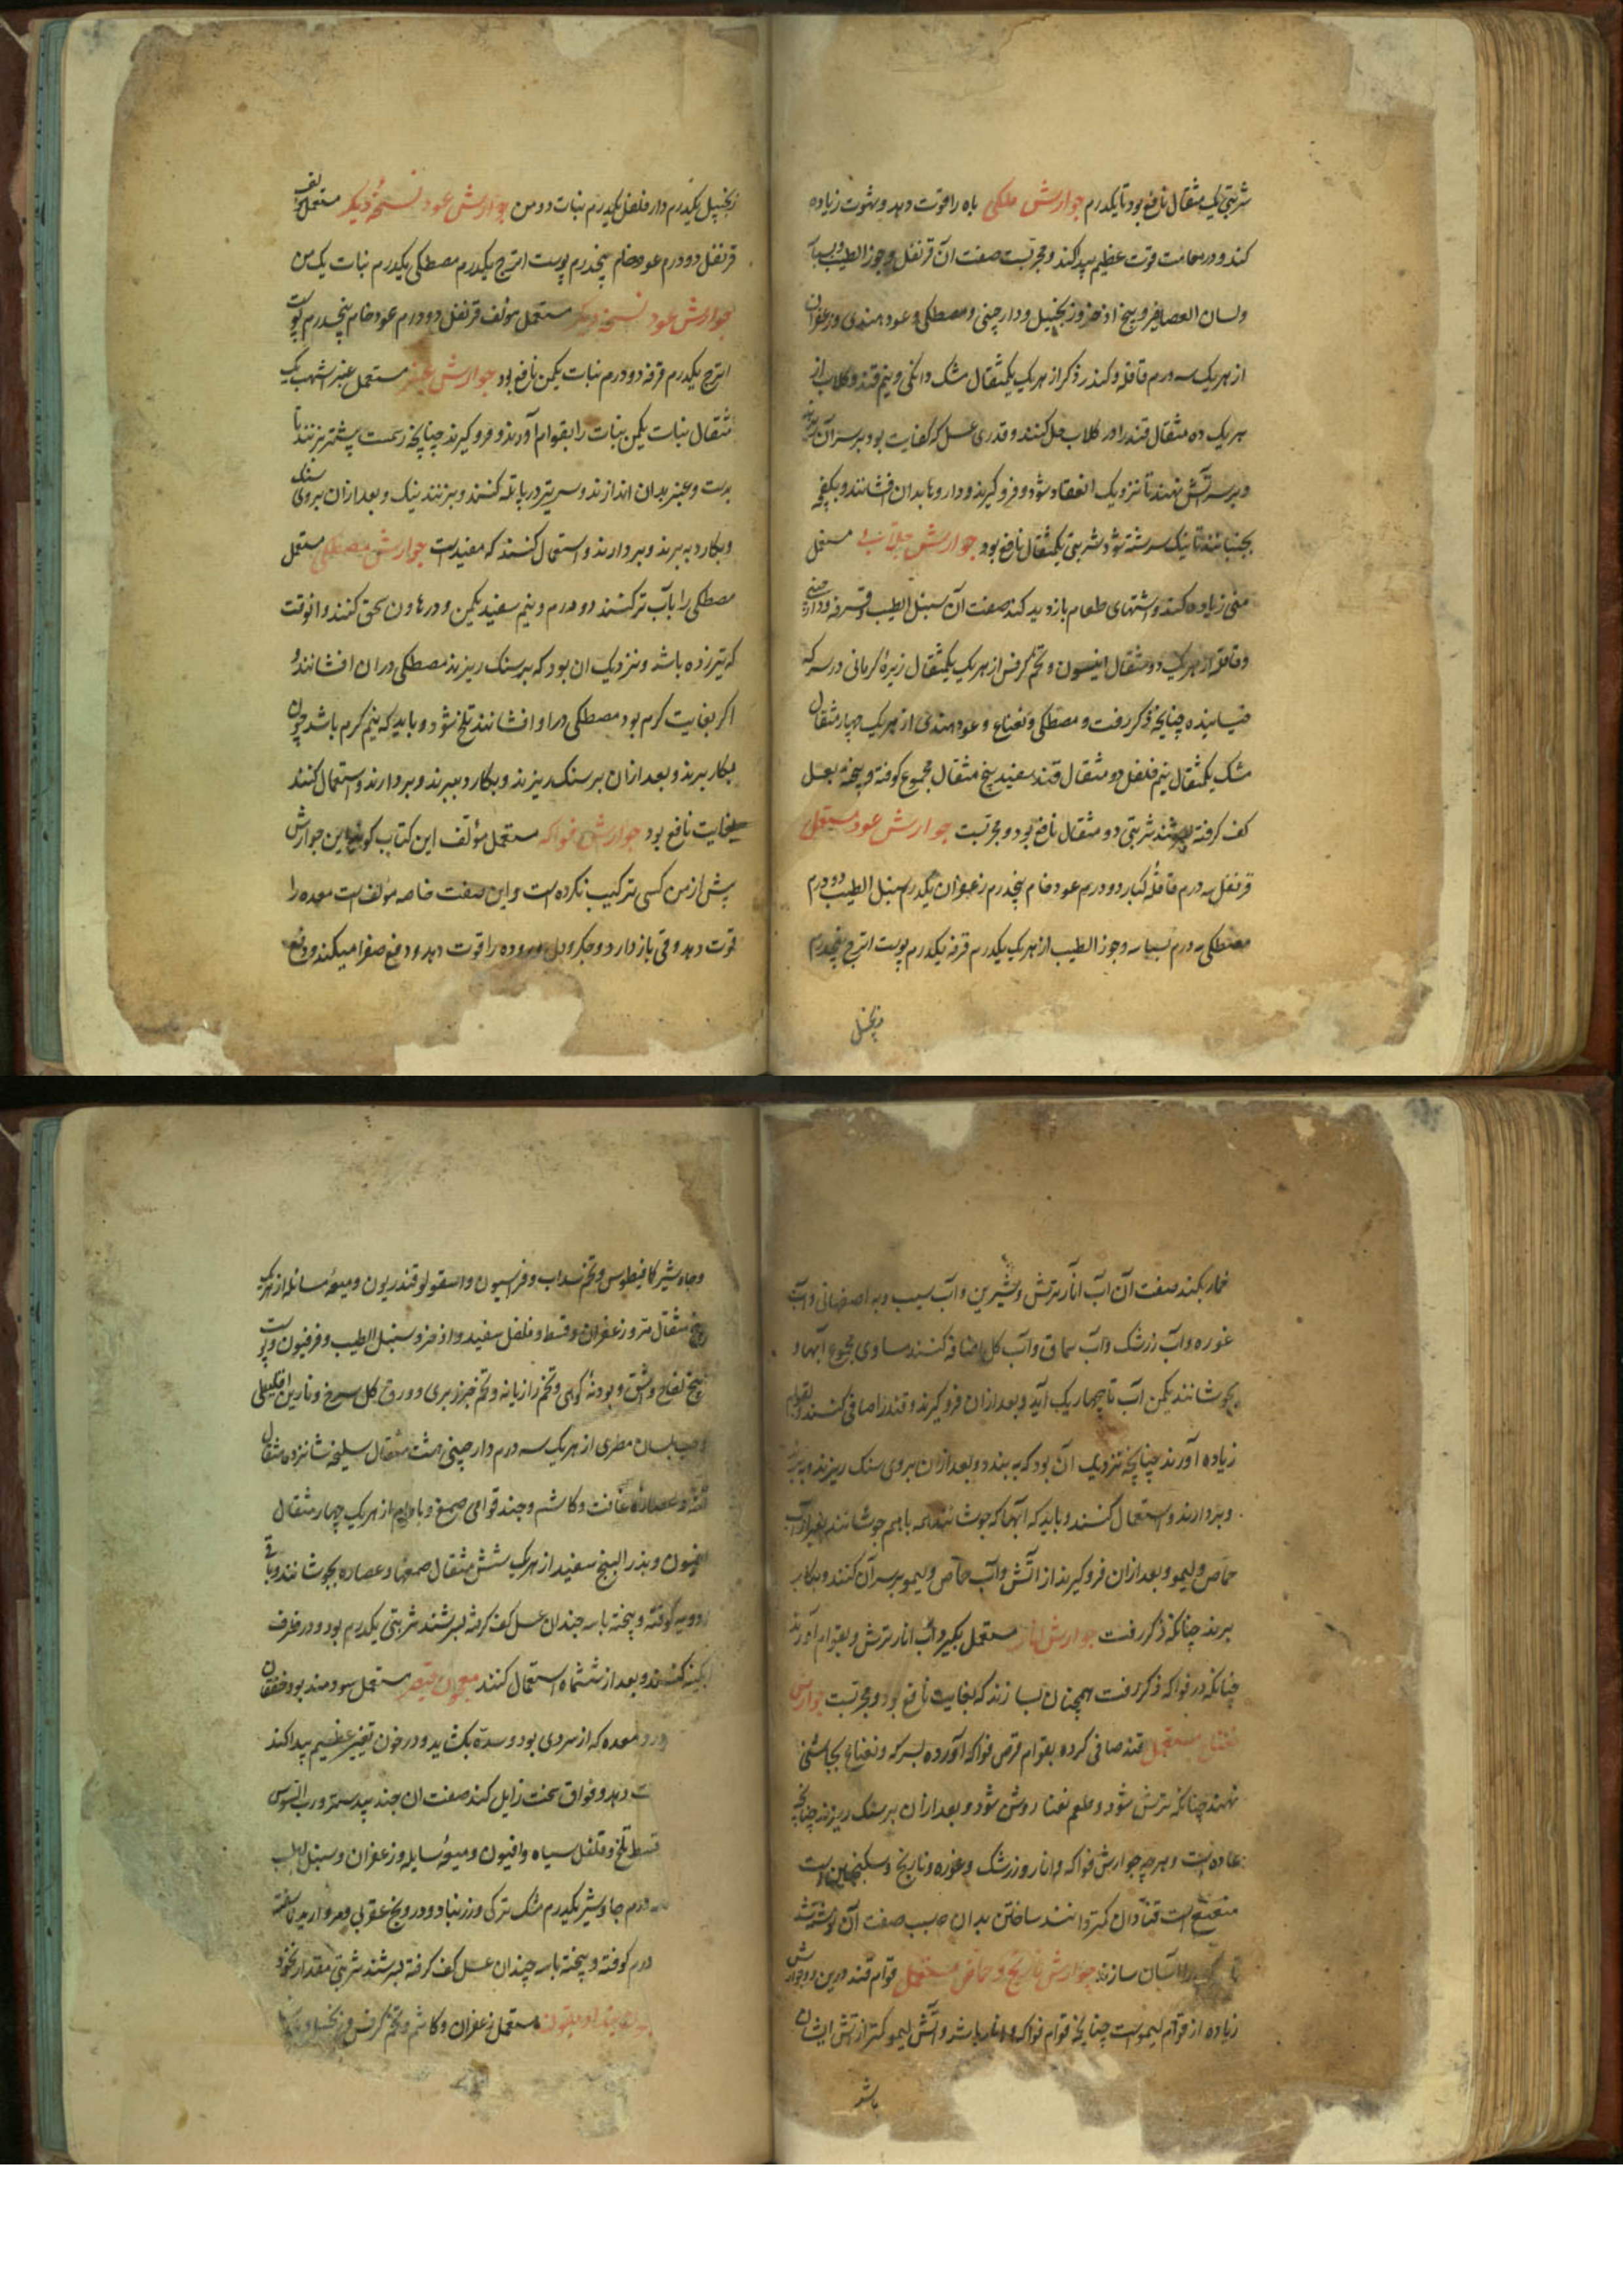 شربتی یک مثقال نافع بود تا یکدرم جوارش ملکی باه را قوت دهد و شهوت زیاده
کند و در مجامعت قوت عظیم پیدا کند و مجربست صفت آن قرنفل و جوز الطیب و بسباسه
ولسان العصافیر و بیخ اذخر و زنجبیل و دارچینی و مصطکی و عود هندی و زعفران
از هر یک سه درم قاقله و کندر ذکر از هر یک یکمثقال مشک دانکی و نیم قند و کلاب از
هر یک ده مثقال قند را در کلاب حل کنند و قدری عسل که کفایت بود بر سر آن
و بر سر آتش نهند تا نزدیک انعقاد شود و فرو کیرند و داروها بدان افشانند و بکفچه
بجنبانند تا نیک سرشته شود شربتی یکمثقال نافع بود جوارش مستعمل
منی زیاده کند و اشتهای طعام بازدید کند صفت آن سنبل الطیب و قرفه و دارچینی
و قاقله از هر یک دو مثقال انیسون و تخم کرفس از هر یک یکمثقال زیره کرمانی در سرکه
خیسانیده چنانچه ذکر رفت و مصطکی و نعناع و عود هندی از هر یک چهار مثقال
مشک یکمثقال نیم فلفل دو مثقال قند سفید پنج مثقال مجموع کوفته و بیخته بعسل
کف کرفته بسرشند شربتی دو مثقال نافع بود و مجربست جوارش عود مستعمل
قرنفل سه درم قاقله کبار دو درم عود خام پنجدرم زعفران یکدرم سنبل الطیب دو درم
مصطکی سه درم بسباسه و جوز الطیب از هر یک یکدرم قرفه یکدرم پوست اترج پنجدرم
زنجبیل
زنجبیل یکدرم دار فلفل یکدرم نبات دو من جوارش عود نسخه دیکر مستعمل مؤلف
قرنفل دو درم عود خام پنجدرم پوست اترج یکدرم مصطکی یکدرم نبات یک من
جوارش عود نسخه دیکر مستعمل مؤلف قرنفل دو درم عود خام پنجدرم پوست
اترج یکدرم قرفه دو درم نبات یکمن نافع بود جوارش عنبر مستعمل عنبر اشهب یک
مثقال نبات یکمن نبات را بقوام آورند و فرو کیرند چنانچه رسمست پشتر بزنند تا
برست و عنبر بدان اندازند و سر تیر در پاتله کنند و بزنند نیک و بعد از ان بر روی سنک
و بکارد ببرند و بردارند و استعمال کنند که مفیدست جوارش مصطکی مستعمل
مصطکی را بآب تر کنند دو درم و نیم سفید یکمن و در هاون سحق کنند و انوقت
که تیر زده باشد و نزدیک ان بود که بر سنک ریزند مصطکی در ان افشانند و
اکر بغایت کرم بود مصطکی در او افشانند تلخ شود و باید که نیم کرم باشد چون
بکار برند و بعد از ان بر سنک ریزند و بکارد ببرند و بردارند و استعمال کنند
بغایت نافع بود جوارش فواکه مستعمل مؤلف این کتاب کوید این جوارش
پیش از من کسی ترکیب نکرده است و این صفت خاصه مؤلف است معده را
قوت دهد و قی باز دارد و جکر و دل و روده را قوت دهد و دفع صفرا میکند و دفع
خمار بکند صفت آن آب انار ترش و شیرین و آب سیب و به اصفهانی و آب
غوره و آب زرشک و آب سماق و آب کل اضافه کنند مساوی مجموع آبها و
بجوشانند یکمن آب تا چهار یک آید و بعد از ان فرو کیرند و قند را صافی کنند و بقوام
زیاده آورند چنانچه نزدیک آن بود که ببندد و بعد از ان بر روی سنک ریزند و ببرند
و بردارند و استعمال کنند و باید که آبها که جوشانند همه باهم جوشانند بغیر از آب
حماض و لیمو و بعد از ان فرو کیرند از آتش و آب حماض و لیمو بر سر آن کنند و بکار
برند چنانکه ذکر رفت جوارش انار مستعمل بکیرد آب انار ترش و بقوام آورند
چنانکه در فواکه ذکر رفت همچنان بسازند که بغایت نافع بود و مجربست جوارش
نعناع مستعمل قند صافی کرده بقوام قرص فواکه آورده بسرکه و نعناع بچاشنی
نهند چنانکه ترش شود و طعم نعنا روشن شود و بعد از ان بر سنک ریزند چنانچه
عاده است و هر چه جوارش فواکه و انار و زرشک و غوره و نارنج و سکنجبین است
منعنع است قنادان کمتر دانند ساختن بدان سبب صفت آن نوشته شد
تا را آسان سازند جوارش نارنج و حماض مستعمل قوام قند درین دو جوارش
زیاده از قوام لیموست چنانچه قوام فواکه و انار باشد و آتش لیمو کمتر از آتش ایشان
باشد
و جاوشیر کافیطوس و تخم سداب و فراسیون و اسقولوقندریون و میعه سائله از هر یک
پنج مثقال مر و زعفران و قسط و فلفل سفید و اذخر و سنبل الطیب و فرفیون و پوست
بیخ لفاح و اشق و بودنه کوهی و تخم رازیانه و تخم جزر بری و ورق کل سرخ و ناردین اقلیطی
و حب بلسان مطری از هر یک سه درم دارچینی هشت مثقال سلیخه شانزده مثقال
و عصاره غافت و کاشم و جند قوامی صمغ و بادام از هر یک چهار مثقال
افیون و بذر البنج سفید از هر یک شش مثقال صمغها و عصاره بجوشانند و باقی
ادویه کوفته و بیخته با سه چندان عسل کف کرفته بسرشند شربتی یکدرم بود و در ظرف
آبکینه کنند و بعد از ششماه استعمال کنند معجون مستعمل سودمند بود خفقان
و درد معده که از سردی بود و سده بکشاید و در خون تغییر عظیم پیدا کند
دهد و فواق سخت زایل کند صفت ان جند بیدستر و رب السوس
قسط تلخ و فلفل سیاه و افیون و میعه سایله و زعفران و سنبل الطیب
درم جاوشیر یکدرم مشک ترکی و زرنباد و درونج عقربی و مروارید ناسفته
درم کوفته و بیخته با سه چندان عسل کف کرفته بسرشند شربتی مقدار نخود
مستعمل زعفران و کاشم و تخم کرفس و زنجبیل و